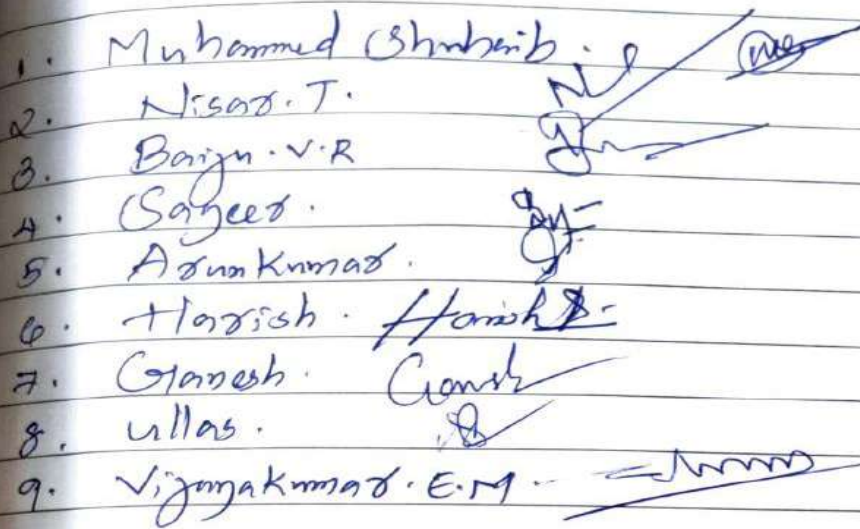 1. Muhammed Shuhaib.
2. Nisar. T.
3. Baiju. V. R
4. Sageer.
5. Arun Kumar.
6. Harish. Harish
7. Ganesh. Ganesh
8. ullas.
9. Vijayakumar. E. M.